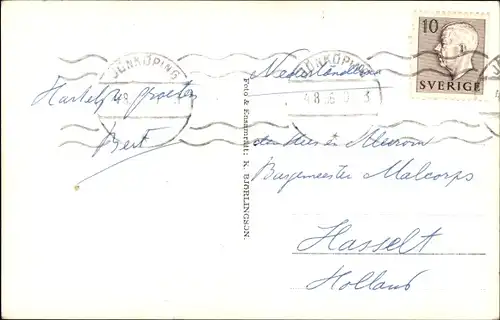 JÖNKÖPING
JÖNKÖPING
10
SVERIGE
4.8.56
Hartelijke groeten
Bert
Foto & Ensamrätt: K. BJÖRLINGSON.
Burgemeester Malcorps
Hasselt
Holland